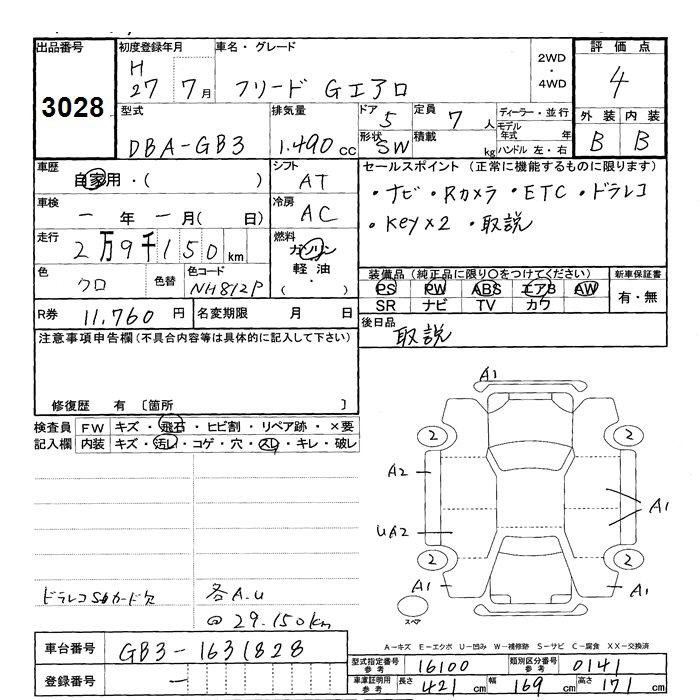 出品番号 初度登録年月 車名・グレード 2WD・4WD 評価点
3028 H 27 7月 フリード Gエアロ 4
型式 排気量 ドア 5 定員 7人 ディーラー・並行 外装 内装
DBA-GB3 1.490 cc 形状 SW 積載 kg モデル年式 年 ハンドル 左・右 B B
車歴 自家用・( ) シフト AT セールスポイント (正常に機能するものに限ります)
・ナビ・Rカメラ・ETC・ドラレコ
車検 一年 一月(日) 冷房 AC ・Key×2・取説
走行 2万9千150km 燃料 ガソリン 軽油・( )
色 クロ 色替 色コード NH812P 装備品(純正品に限り○をつけてください) 新車保証書
PS PW ABS エアB AW 有・無
SR ナビ TV カワ
R券 11,760円 名変期限 月 日 後日品 取説
注意事項申告欄(不具合内容等は具体的に記入して下さい)
修復歴 有 〔箇所 〕
検査員 FW キズ・飛石・ヒビ割・リペア跡・×要
記入欄 内装 キズ・汚れ・コゲ・穴・スレ・キレ・破レ
A1
2 2
A2
A1
UA2
2 2
A1 A1
スペア
ドラレコSDカード欠 各A.U
@29.150km
A-キズ E-エクボ U-凹み W-補修跡 S-サビ C-腐食 XX-交換済
車台番号 GB3-1631828 型式指定番号 参考 16100 類別区分番号 参考 0141
登録番号 一 車庫証明用 参考 長さ 421cm 幅 169cm 高さ 171cm